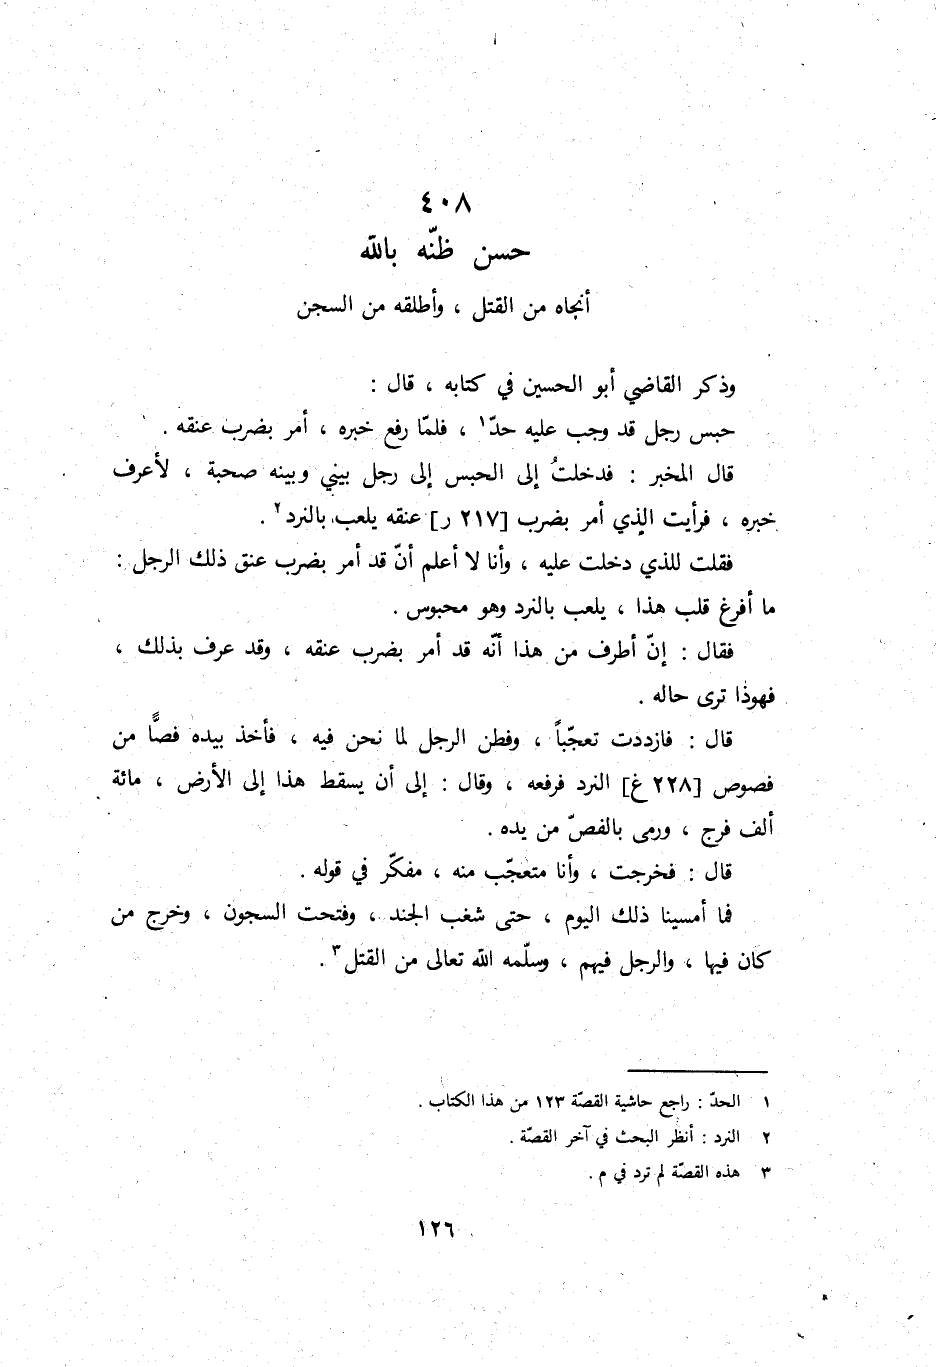 ٤٠٨
حسن ظنّه بالله
أنجاه من القتل ، وأطلقه من السجن
وذكر القاضي أبو الحسين في كتابه ، قال :
حبس رجل قد وجب عليه حدّ١ ، فلمّا رفع خبره ، أمر بضرب عنقه .
قال المخبر : فدخلتُ إلى الحبس إلى رجل بيني وبينه صحبة ، لأعرف
خبره ، فرأيت الذي أمر بضرب [٢١٧ ر] عنقه يلعب بالنرد٢ .
فقلت للذي دخلت عليه ، وأنا لا أعلم أنّ قد أمر بضرب عنق ذلك الرجل :
ما أفرغ قلب هذا ، يلعب بالنرد وهو محبوس .
فقال : إنّ أطرف من هذا أنّه قد أمر بضرب عنقه ، وقد عرف بذلك ،
فهوذا ترى حاله .
قال : فازددت تعجّباً ، وفطن الرجل لما نحن فيه ، فأخذ بيده فصًّا من
فصوص [٢٢٨ غ] النرد فرفعه ، وقال : إلى أن يسقط هذا إلى الأرض ، مائة
ألف فرج ، ورمى بالفصّ من يده .
قال : فخرجت ، وأنا متعجّب منه ، مفكّر في قوله .
فما أمسينا ذلك اليوم ، حتى شغب الجند ، وفتحت السجون ، وخرج من
كان فيها ، والرجل فيهم ، وسلّمه الله تعالى من القتل٣ .
١ الحدّ : راجع حاشية القصّة ١٢٣ من هذا الكتاب .
٢ النرد : أنظر البحث في آخر القصّة .
٣ هذه القصّة لم ترد في م .
١٢٦